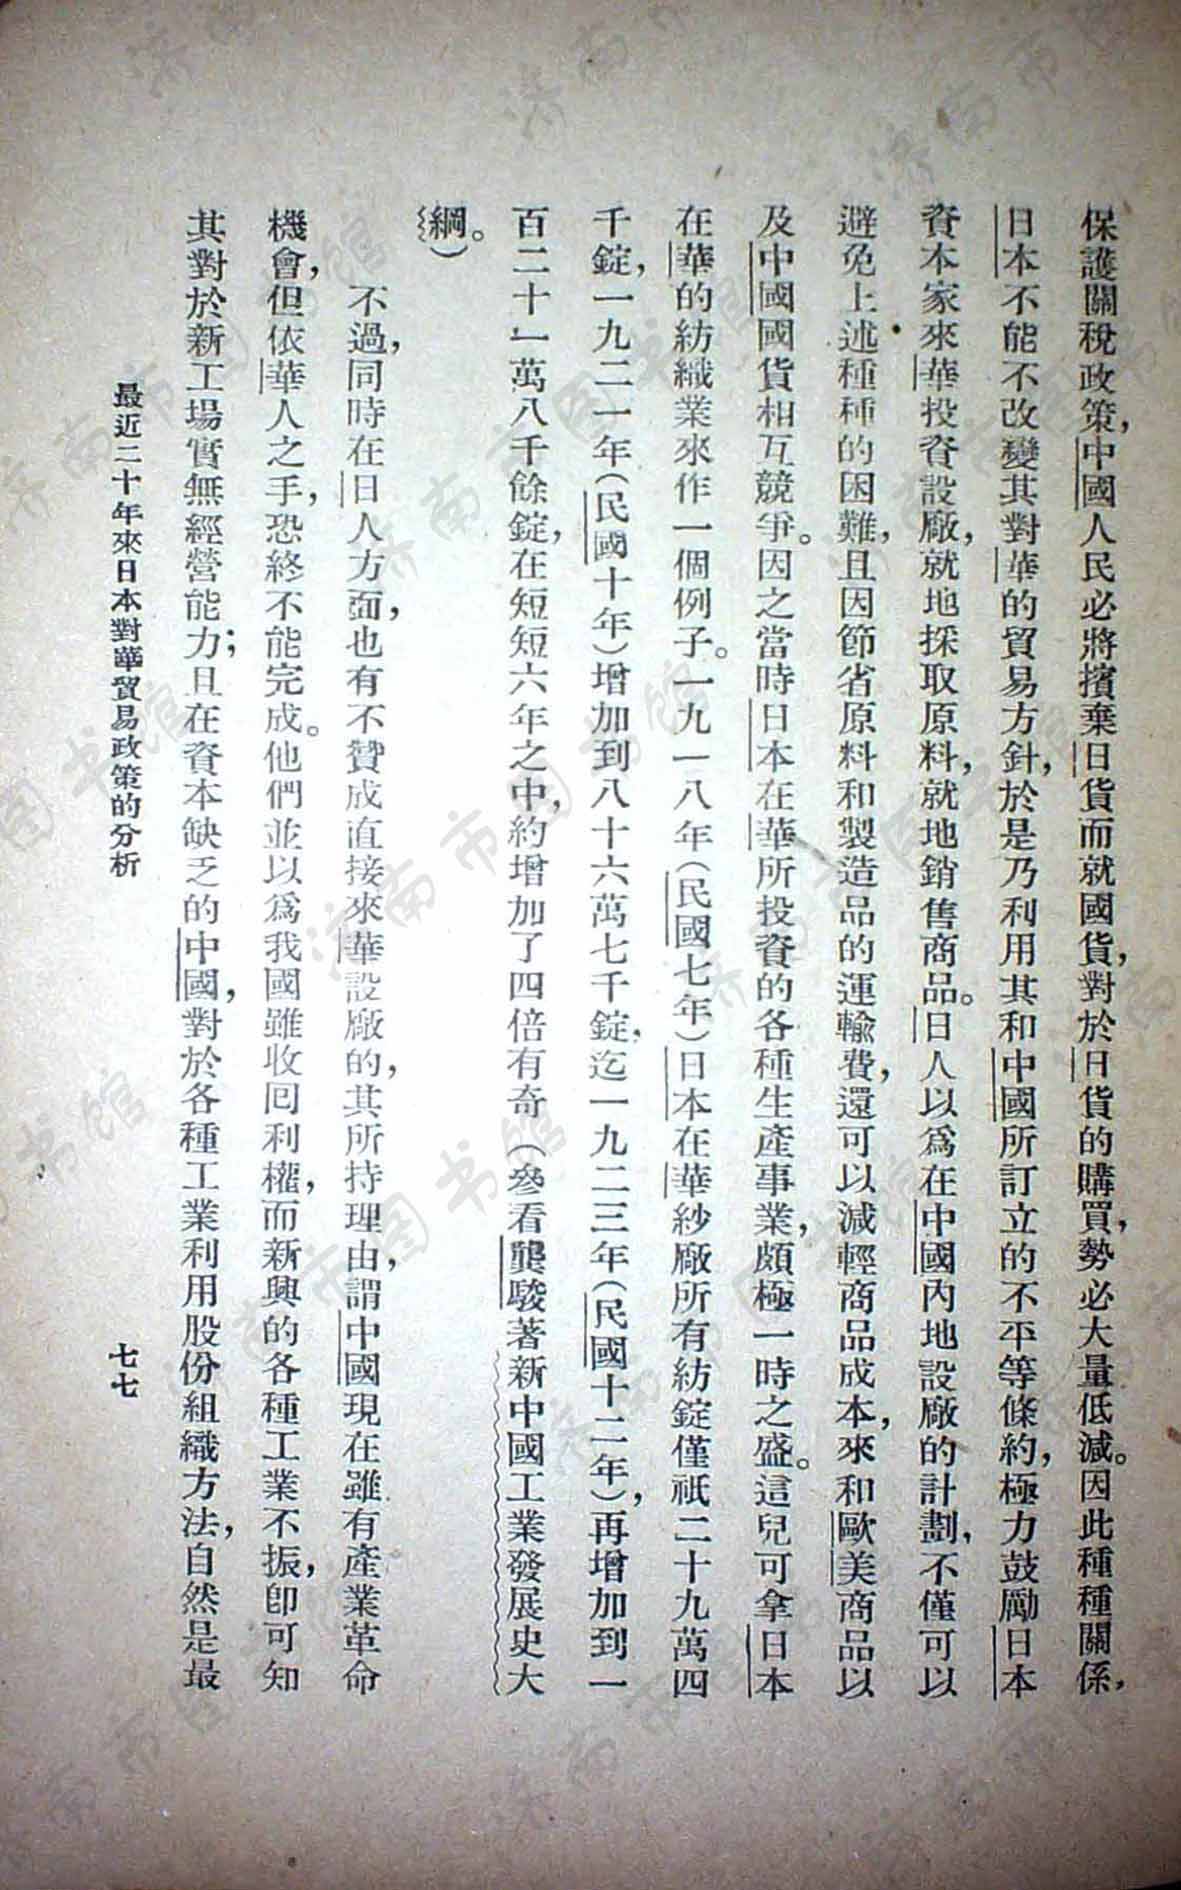 保護關稅政策，中國人民必將擯棄日貨而就國貨，對於日貨的購買，勢必大量低減。因此種種關係，
日本不能不改變其對華的貿易方針，於是乃利用其和中國所訂立的不平等條約，極力鼓勵日本
資本家來華投資設廠，就地採取原料，就地銷售商品。日人以爲在中國內地設廠的計劃，不僅可以
避免上述種種的困難，且因節省原料和製造品的運輸費，還可以減輕商品成本，來和歐美商品以
及中國國貨相互競爭。因之當時日本在華所投資的各種生產事業，頗極一時之盛。這兒可拿日本
在華的紡織業來作一個例子。一九一八年（民國七年）日本在華紗廠所有紡錠僅祇二十九萬四
千錠，一九二一年（民國十年）增加到八十六萬七千錠，迄一九二三年（民國十二年），再增加到一
百二十一萬八千餘錠，在短短六年之中，約增加了四倍有奇（參看龔駿著新中國工業發展史大
綱。）
不過，同時在日人方面，也有不贊成直接來華設廠的，其所持理由，謂中國現在雖有產業革命
機會，但依華人之手，恐終不能完成。他們並以爲我國雖收回利權，而新興的各種工業不振，卽可知
其對於新工場實無經營能力；且在資本缺乏的中國，對於各種工業利用股份組織方法，自然是最
最近二十年來日本對華貿易政策的分析
七七
济南市图书馆